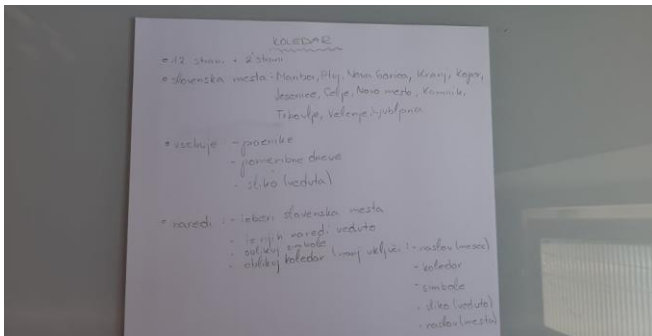 KOLEDAR
• 12 strani + 2 strani
• slovenska mesta: Maribor, Ptuj, Nova Gorica, Kranj, Koper,
Jesenice, Celje, Novo mesto, Kamnik,
Trbovlje, Velenje, Ljubljana
• vsebuje - praznike
- pomembne dneve
- sliko (veduta)
• naredi: - izberi slovenska mesta
- iz njih naredi veduto
- oblikuj simbole
- oblikuj koledar (naj vključi: - naslov (mesec)
- koledar
- simbole
- sliko (veduto)
- naslov (mesta)